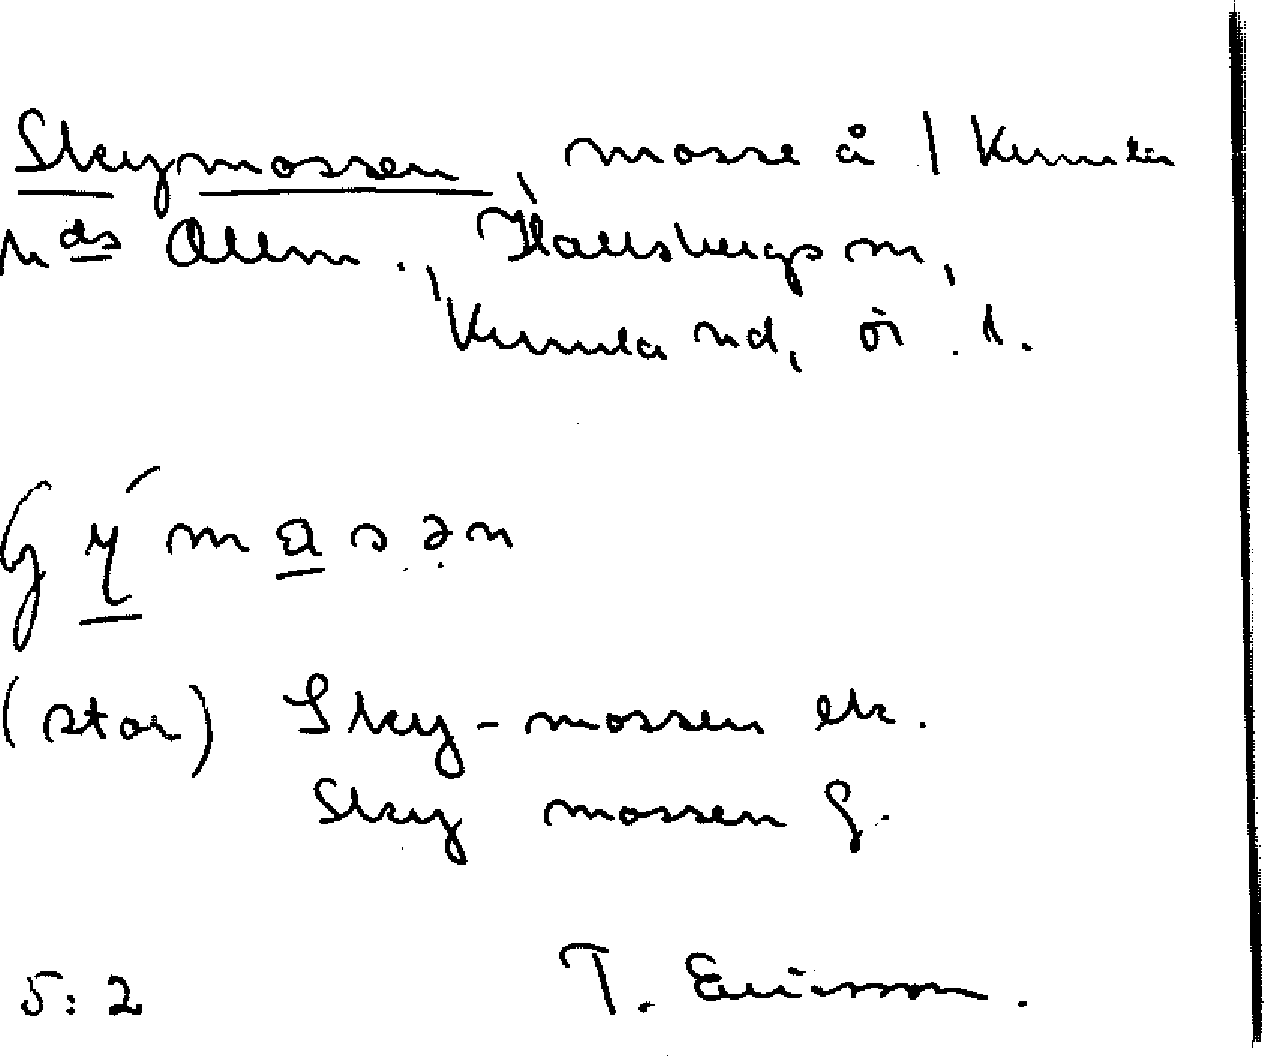 Skymossen, mosse å / Kumla
hds Allm., Hallsbergs sn,
Kumla hd, ör. l.
ʃýmɑsən
(stor) Sky-mossen ek.
Sky mossen g.
5:2 T. Ericsson.